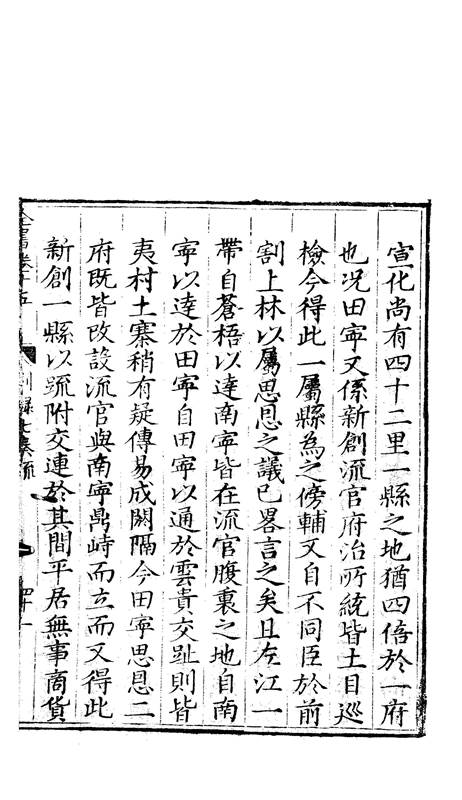 宣化尚有四十二里一縣之地猶四倍於一府
也况田寧又係新創流官府治所統皆土目巡
檢今得此一屬縣為之傍輔又自不同臣於前
割上林以屬思恩之議已畧言之矣且左江一
帶自蒼梧以達南寧皆在流官腹裏之地自南
寧以達於田寧自田寧以通於雲貴交趾則皆
夷村土寨稍有疑傳易成闕隔今田寧思恩二
府既皆改設流官與南寧鼎峙而立而又得此
新創一縣以疏附交連於其間平居無事商貨
全書卷十五 別錄七奏疏